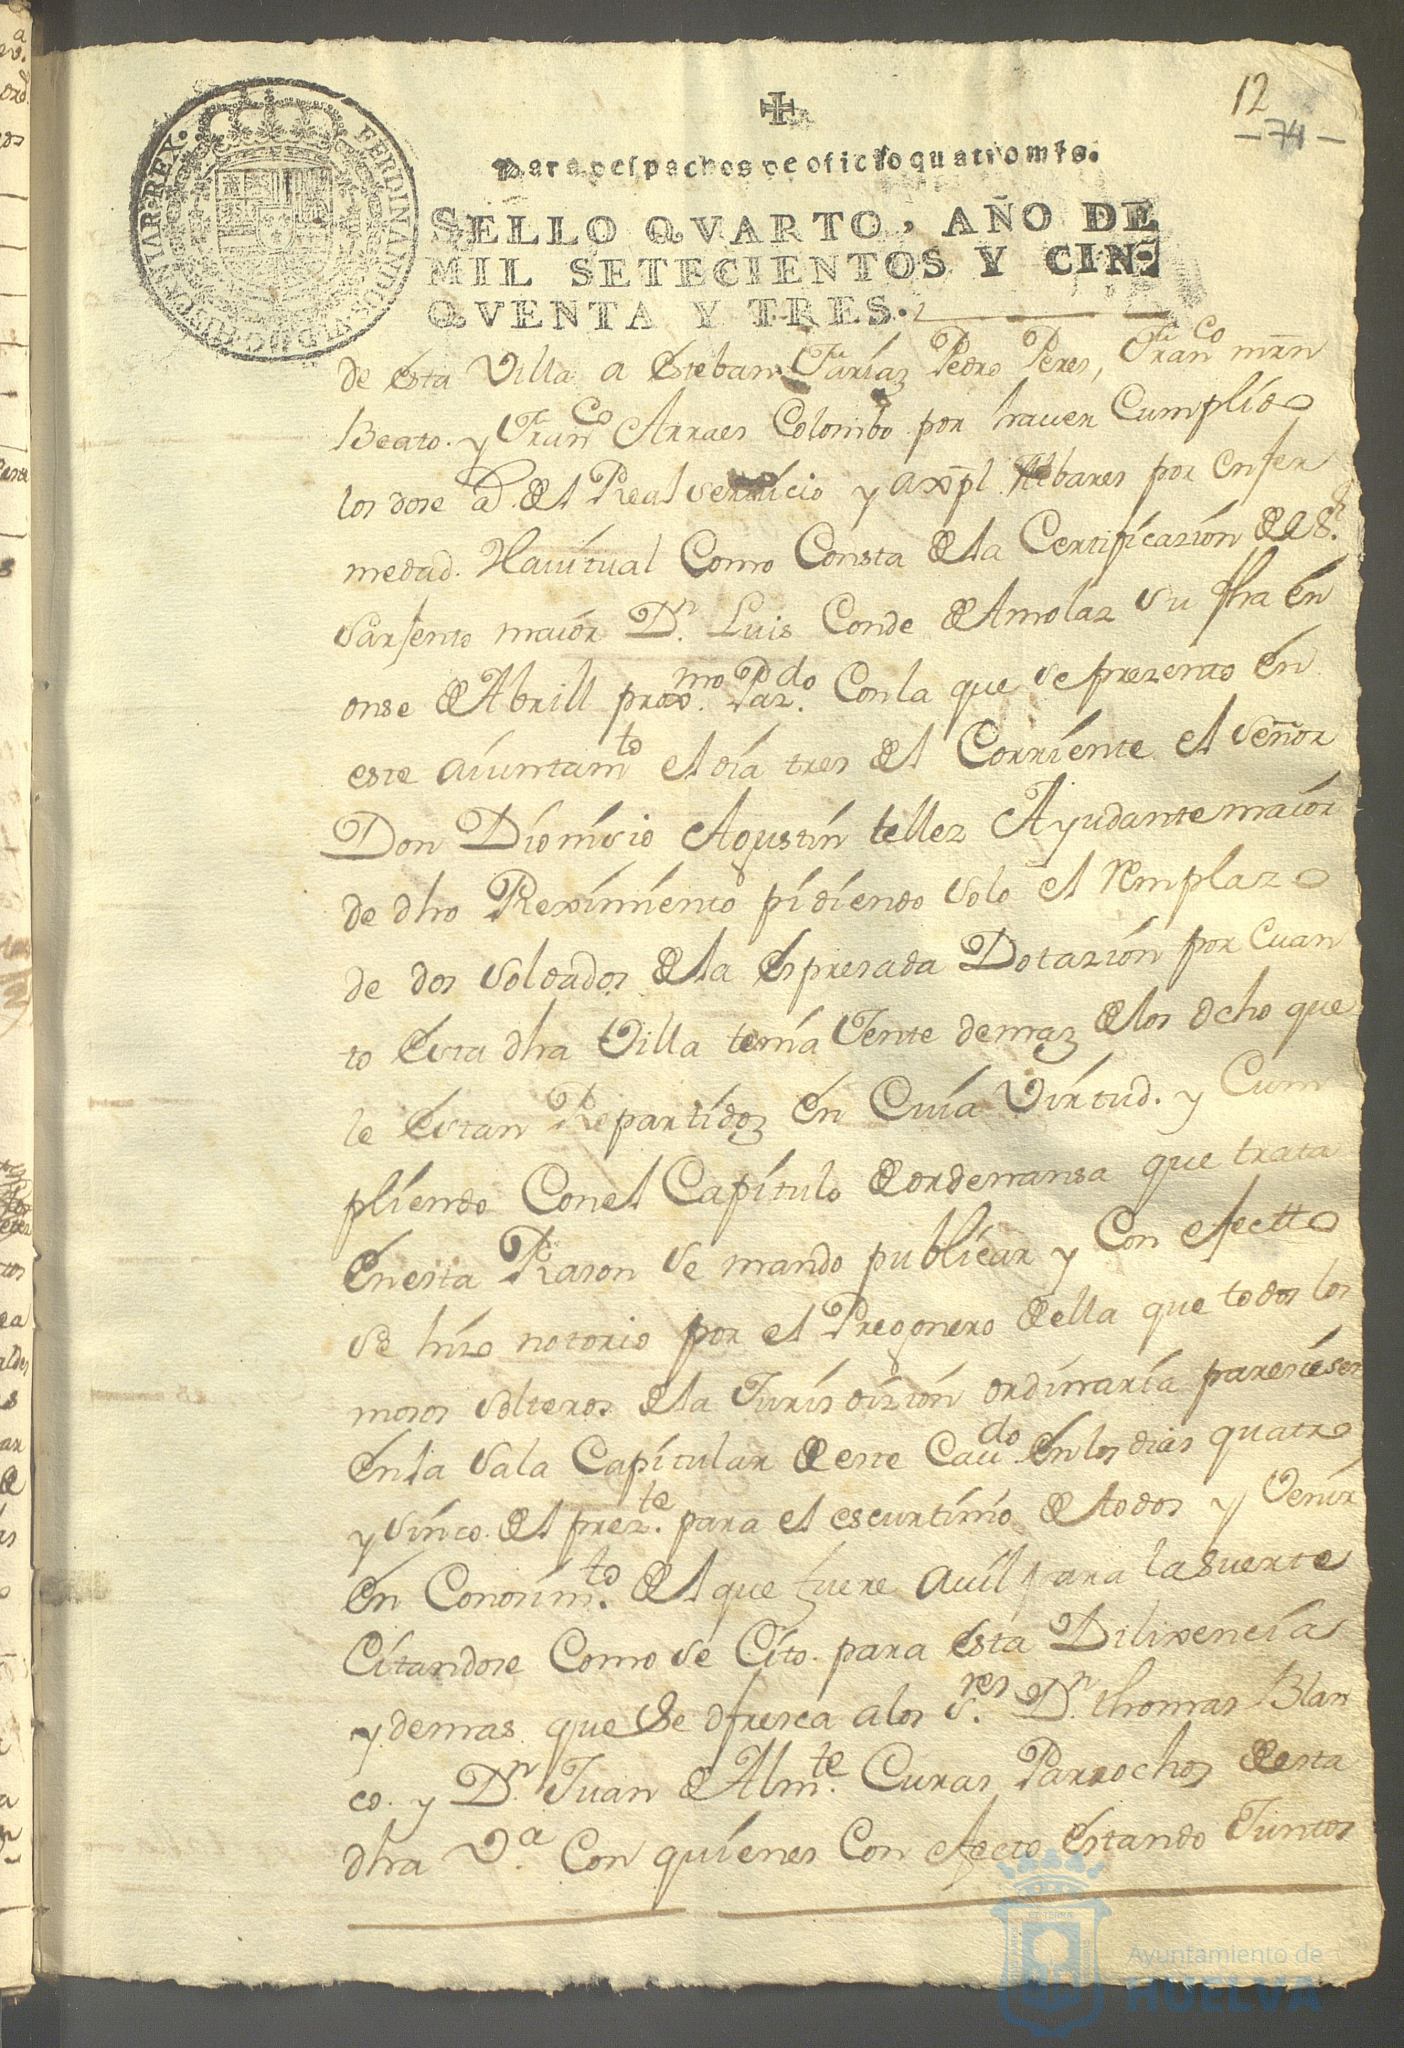 12
-74-
Para despachos de oficio quatro mrs.
SELLO QVARTO, AÑO DE
MIL SETECIENTOS Y CIN-
QVENTA Y TRES.
FERDINANDUS VI D G HISPANIAR REX
de esta Villa a Esteban Farías Pedro Peres, Franco mrñ
Beato. y Franco Arraes Colombo por haver Cumplido
los dose ad. del Real servicio y a xpl. Albares por enfer
medad. Havitual Como Consta de la Certificazion del Sr
Sarjento maior Dn. Luis Conde de Amolaz su fha en
onse de Abrill proxmo. Pazdo. Con la que se prezento en
este aiuntamto el dia tres del Corriente el Señor
Don Dionisio Agustin tellez Ayudante maior
de dho Reximiento pidiendo solo el remplazo
de dos soldados de la espresada Dotazion por cuan
to esta dha Villa tenia Jente demaz de los ocho que
le estan Repartidoz en Cuia Virtud. y Cum
pliendo Con el Capitulo de ordenansa que trata
en esta Rason se mando publicar y Con efectto
se hizo notorio por el Pregonero de ella que todos los
mosos solteros de la Jurisdizion ordinaria paresiesen
en la sala Capitular de este Cavdo en los dias quatro
y sinco. del prezte. para el escurtinio de todos y Venir
en Conosimto. del que fuere avil para la suerte
Citandose Como se Cito. para esta Dilixencia
y demas que se ofresca a los sres. Dn. thomas Blan
co. y Dn. Juan de Almte. Curas Parrochos de esta
dha Va. Con quienes Con efecto estando Juntos
Ayuntamiento de
HUELVA